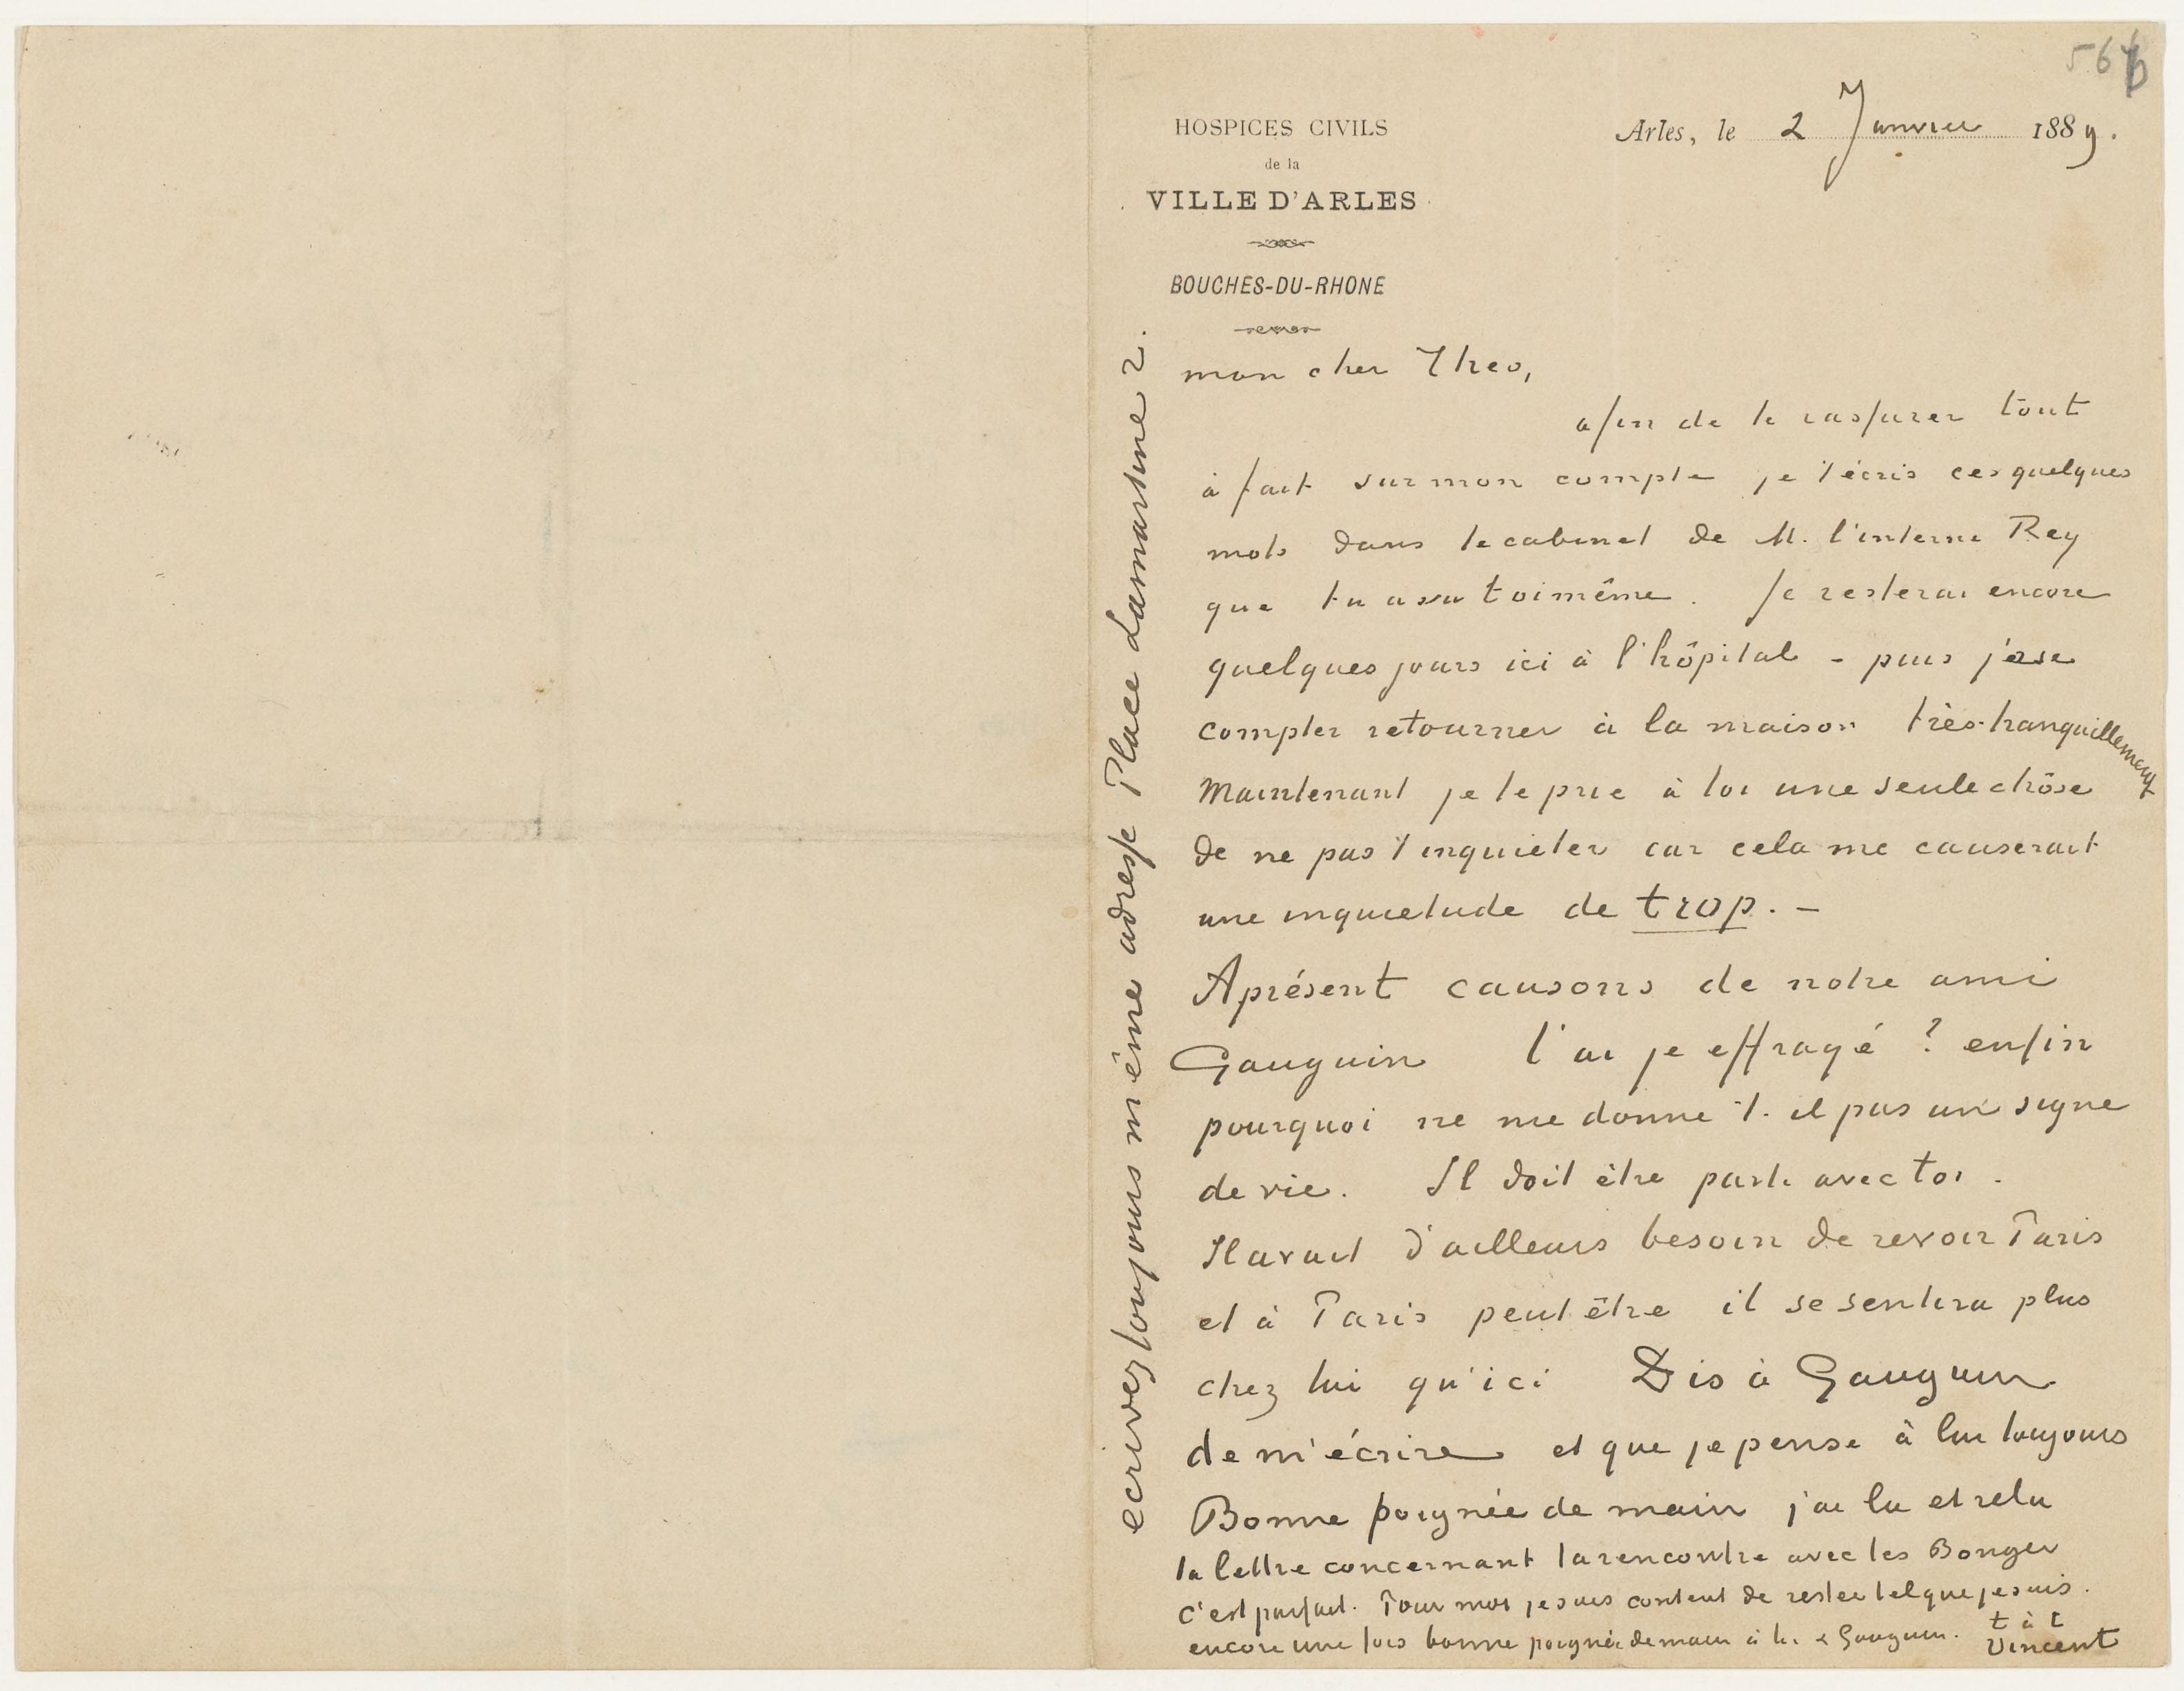 567
HOSPICES CIVILS
de la
VILLE D'ARLES
BOUCHES-DU-RHONE
Arles, le 2 Janvier 1889.
mon cher Theo,
afin de te rassurer tout
à fait sur mon compte je t'écris ces quelques
mots dans le cabinet de M. l'interne Rey
que tu as vu toi même. Je resterai encore
quelques jours ici à l'hôpital - puis j'ose
compter retourner à la maison très tranquillement
Maintenant je te prie à toi une seule chôse
de ne pas t'inquieter car cela me causerait
une inquietude de trop. —
Aprésent causons de notre ami
Gauguin l'ai je effrayé? enfin
pourquoi ne me donne t-il pas un signe
de vie. Il doit être parti avec toi.
Il avait d'ailleurs besoin de revoir Paris
et à Paris peut être il se sentira plus
chez lui qu'ici Dis à Gauguin
de m'écrire et que je pense à lui toujours
Bonne poignée de main j'ai lu et relu
ta lettre concernant la rencontre avec les Bonger
c'est parfait. Pour moi je suis content de rester tel que je suis.
encore une fois bonne poignée de main à toi & Gauguin. t à t
Vincent
ecrivez toujours même adresse Place Lamartine 2.